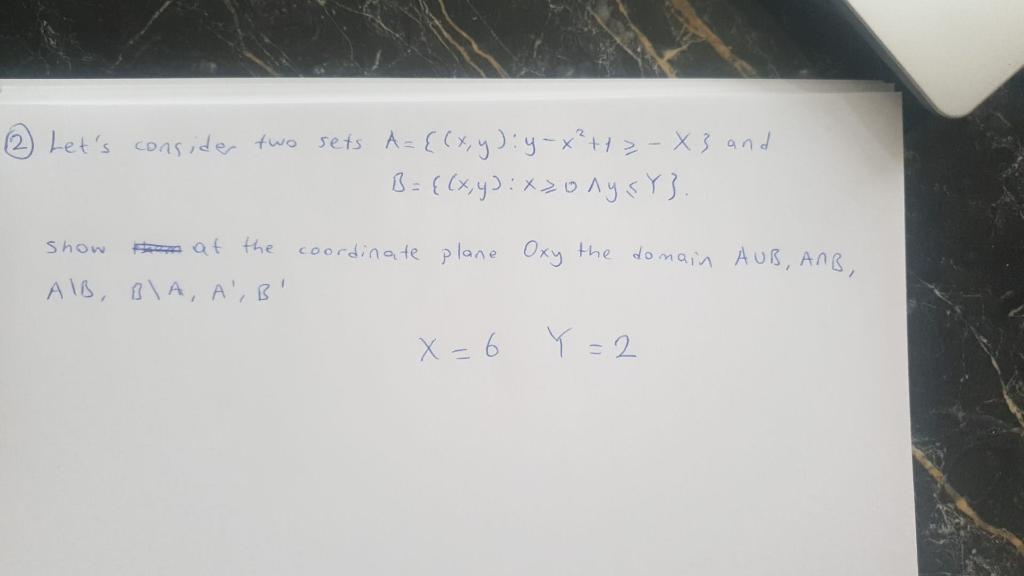 ② Let's consider two sets A={(x,y):y-x²+1≥-X} and
B={(x,y):x≥0∧y≤Y}.
show at the coordinate plane Oxy the domain A∪B, A∩B,
A\B, B\A, A', B'
X=6 Y=2